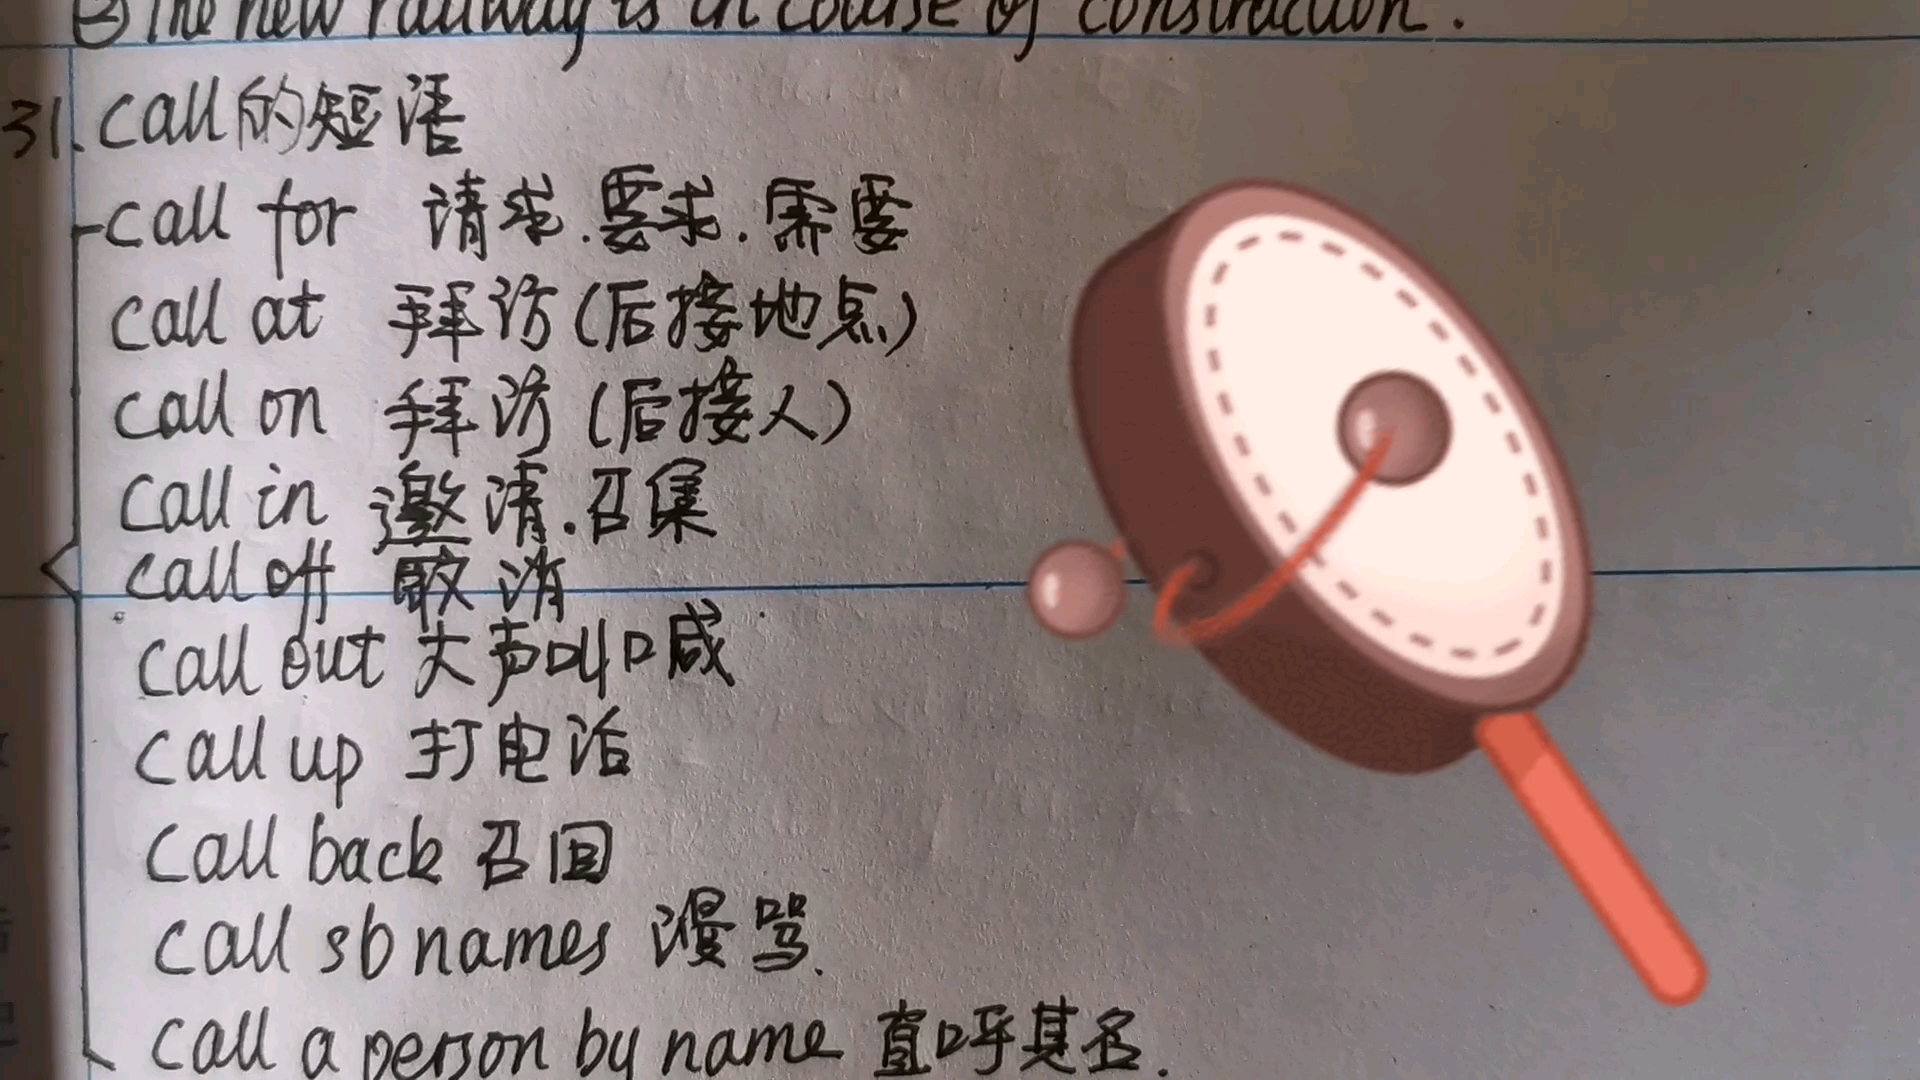 ② The new railway is in course of construction.
31. call的短语
call for 请求.要求.需要
call at 拜访(后接地点)
call on 拜访(后接人)
call in 邀请.召集
call off 取消
call out 大声叫喊
call up 打电话
call back 召回
call sb names 谩骂.
call a person by name 直呼其名.